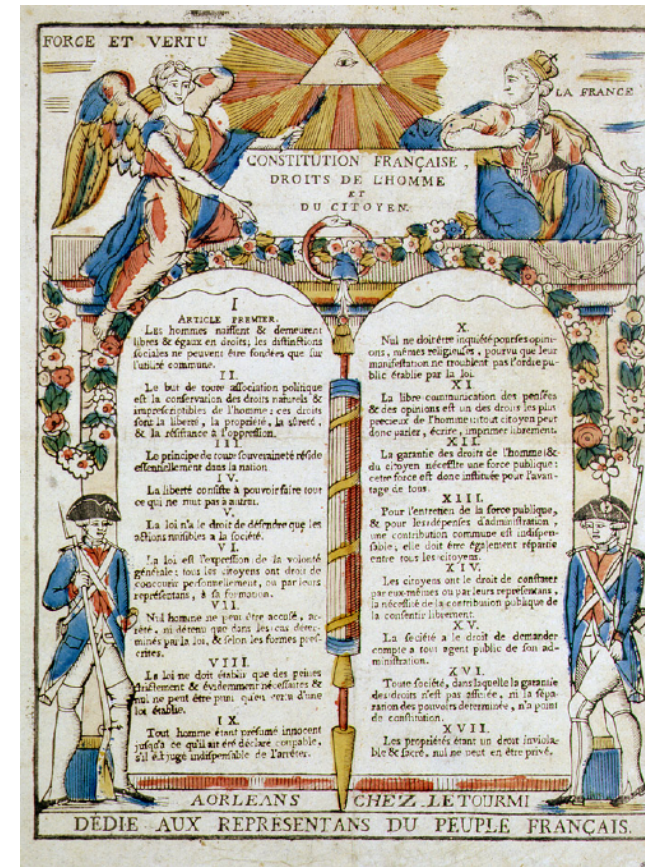 FORCE ET VERTU
LA FRANCE
CONSTITUTION FRANÇAISE,
DROITS DE L'HOMME
ET
DU CITOYEN.
I
ARTICLE PREMIER.
Les hommes naissent & demeurent
libres & égaux en droits; les distinctions
sociales ne peuvent être fondées que sur
l'utilité commune.
II.
Le but de toute association politique
est la conservation des droits naturels &
imprescriptibles de l'homme; ces droits
sont la liberté, la propriété, la sûreté,
& la résistance à l'oppression.
III.
Le principe de toute souveraineté réside
essentiellement dans la nation
IV.
La liberté consiste à pouvoir faire tout
ce qui ne nuit pas à autrui.
V.
La loi n'a le droit de défendre que les
actions nuisibles a la société.
VI.
La loi est l'expression de la volonté
générale; tous les citoyens ont droit de
concourir personnellement, ou par leurs
représentans, à sa formation.
VII.
Nul homme ne peut être accusé, ar-
rêté, ni détenu que dans les cas déter-
minés par la loi, & selon les formes pres-
crites.
VIII.
La loi ne doit établir que des peines
strictement & évidemment nécessaires &
nul ne peut être puni qu'en vertu d'une
loi établie.
IX.
Tout homme étant présumé innocent
jusqu'a ce qu'il ait été déclaré coupable,
s'il est jugé indispensable de l'arrêter.
X.
Nul ne doit être inquiété pour ses opini-
ons, mêmes religieuses, pourvu que leur
manifestation ne troublent pas l'ordre pu-
blic établie par la loi.
XI.
La libre communication des pensées
& des opinions est un des droits les plus
precieux de l'homme: tout citoyen peut
donc parler, écrire, imprimer librement.
XII.
La garantie des droits de l'homme &
du citoyen nécessite une force publique:
cette force est donc instituée pour l'avan-
tage de tous.
XIII.
Pour l'entretien de la force publique,
& pour les dépenses d'administration,
une contribution commune est indispen-
sable, elle doit être également répartie
entre tous les citoyens.
XIV.
Les citoyens ont le droit de constater
par eux-mêmes ou par leurs representans,
la nécessité de la contribution publique de
la consentir librement.
XV.
La société a le droit de demander
compte a tout agent public de son ad-
ministration.
XVI.
Toute société, dans laquelle la garantie
des droits n'est pas assurée, ni la sépa-
ration des pouvoirs determinée, n'a point
de constitution.
XVII.
Les propriétés étant un droit inviola-
ble & sacré, nul ne peut en être privé.
A ORLEANS CHEZ LETOURMI
DÉDIÉ AUX REPRESENTANS DU PEUPLE FRANÇAIS.